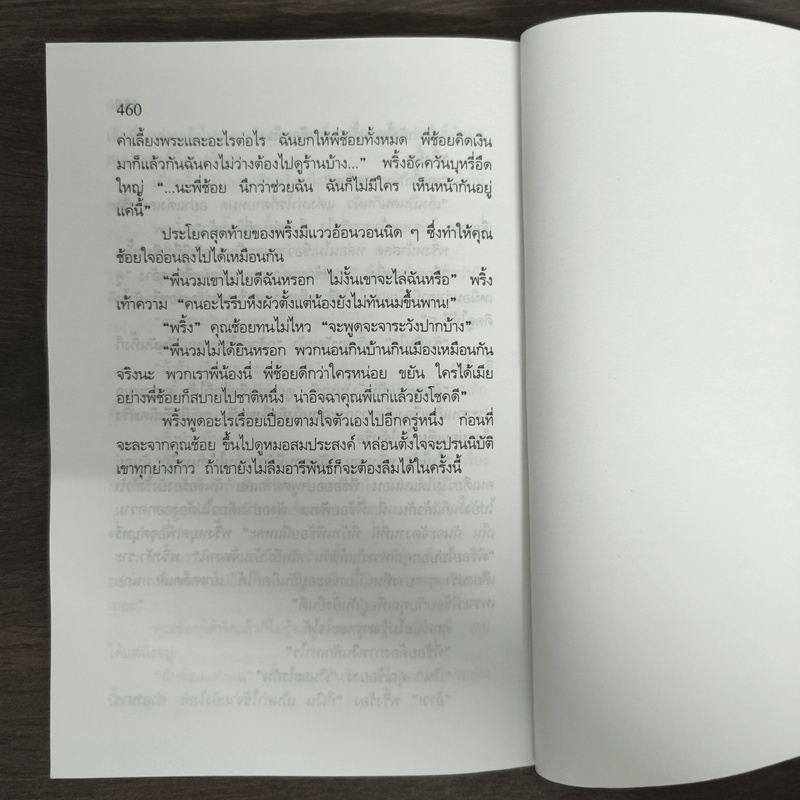 460
ค่าเลี้ยงพระและอะไรต่อไร ฉันยกให้พี่ช้อยทั้งหมด พี่ช้อยคิดเงิน
มาก็แล้วกันฉันคงไม่ว่างต้องไปดูร้านบ้าง...” พริ้งอัดควันบุหรี่อืด
ใหญ่ “...นะพี่ช้อย นึกว่าช่วยฉัน ฉันก็ไม่มีใคร เห็นหน้ากันอยู่
แค่นี้”
ประโยคสุดท้ายของพริ้งมีแววอ้อนวอนนิด ๆ ซึ่งทำให้คุณ
ช้อยใจอ่อนลงไปได้เหมือนกัน
“พี่นวมเขาไม่ไยดีฉันหรอก ไม่งั้นเขาจะไล่ฉันหรือ” พริ้ง
เท้าความ “คนอะไรรีบหึงผัวตั้งแต่น้องยังไม่ทันนมขึ้นพาน!”
“พริ้ง” คุณช้อยทนไม่ไหว “จะพูดจะจาระวังปากบ้าง”
“พี่นวมไม่ได้ยินหรอก พวกนอนกินบ้านกินเมืองเหมือนกัน
จริงนะ พวกเราพี่น้องนี่ พี่ช้อยดีกว่าใครหน่อย ขยัน ใครได้เมีย
อย่างพี่ช้อยก็สบายไปชาติหนึ่ง น่าอิจฉาคุณพี่แก่แล้วยังโชคดี”
พริ้งพูดอะไรเรื่อยเปื่อยตามใจตัวเองไปอีกครู่หนึ่ง ก่อนที่
จะละจากคุณช้อย ขึ้นไปดูหมอสมประสงค์ หล่อนตั้งใจจะปรนนิบัติ
เขาทุกย่างก้าว ถ้าเขายังไม่ลืมอารีพันธ์ก็จะต้องลืมได้ในครั้งนี้